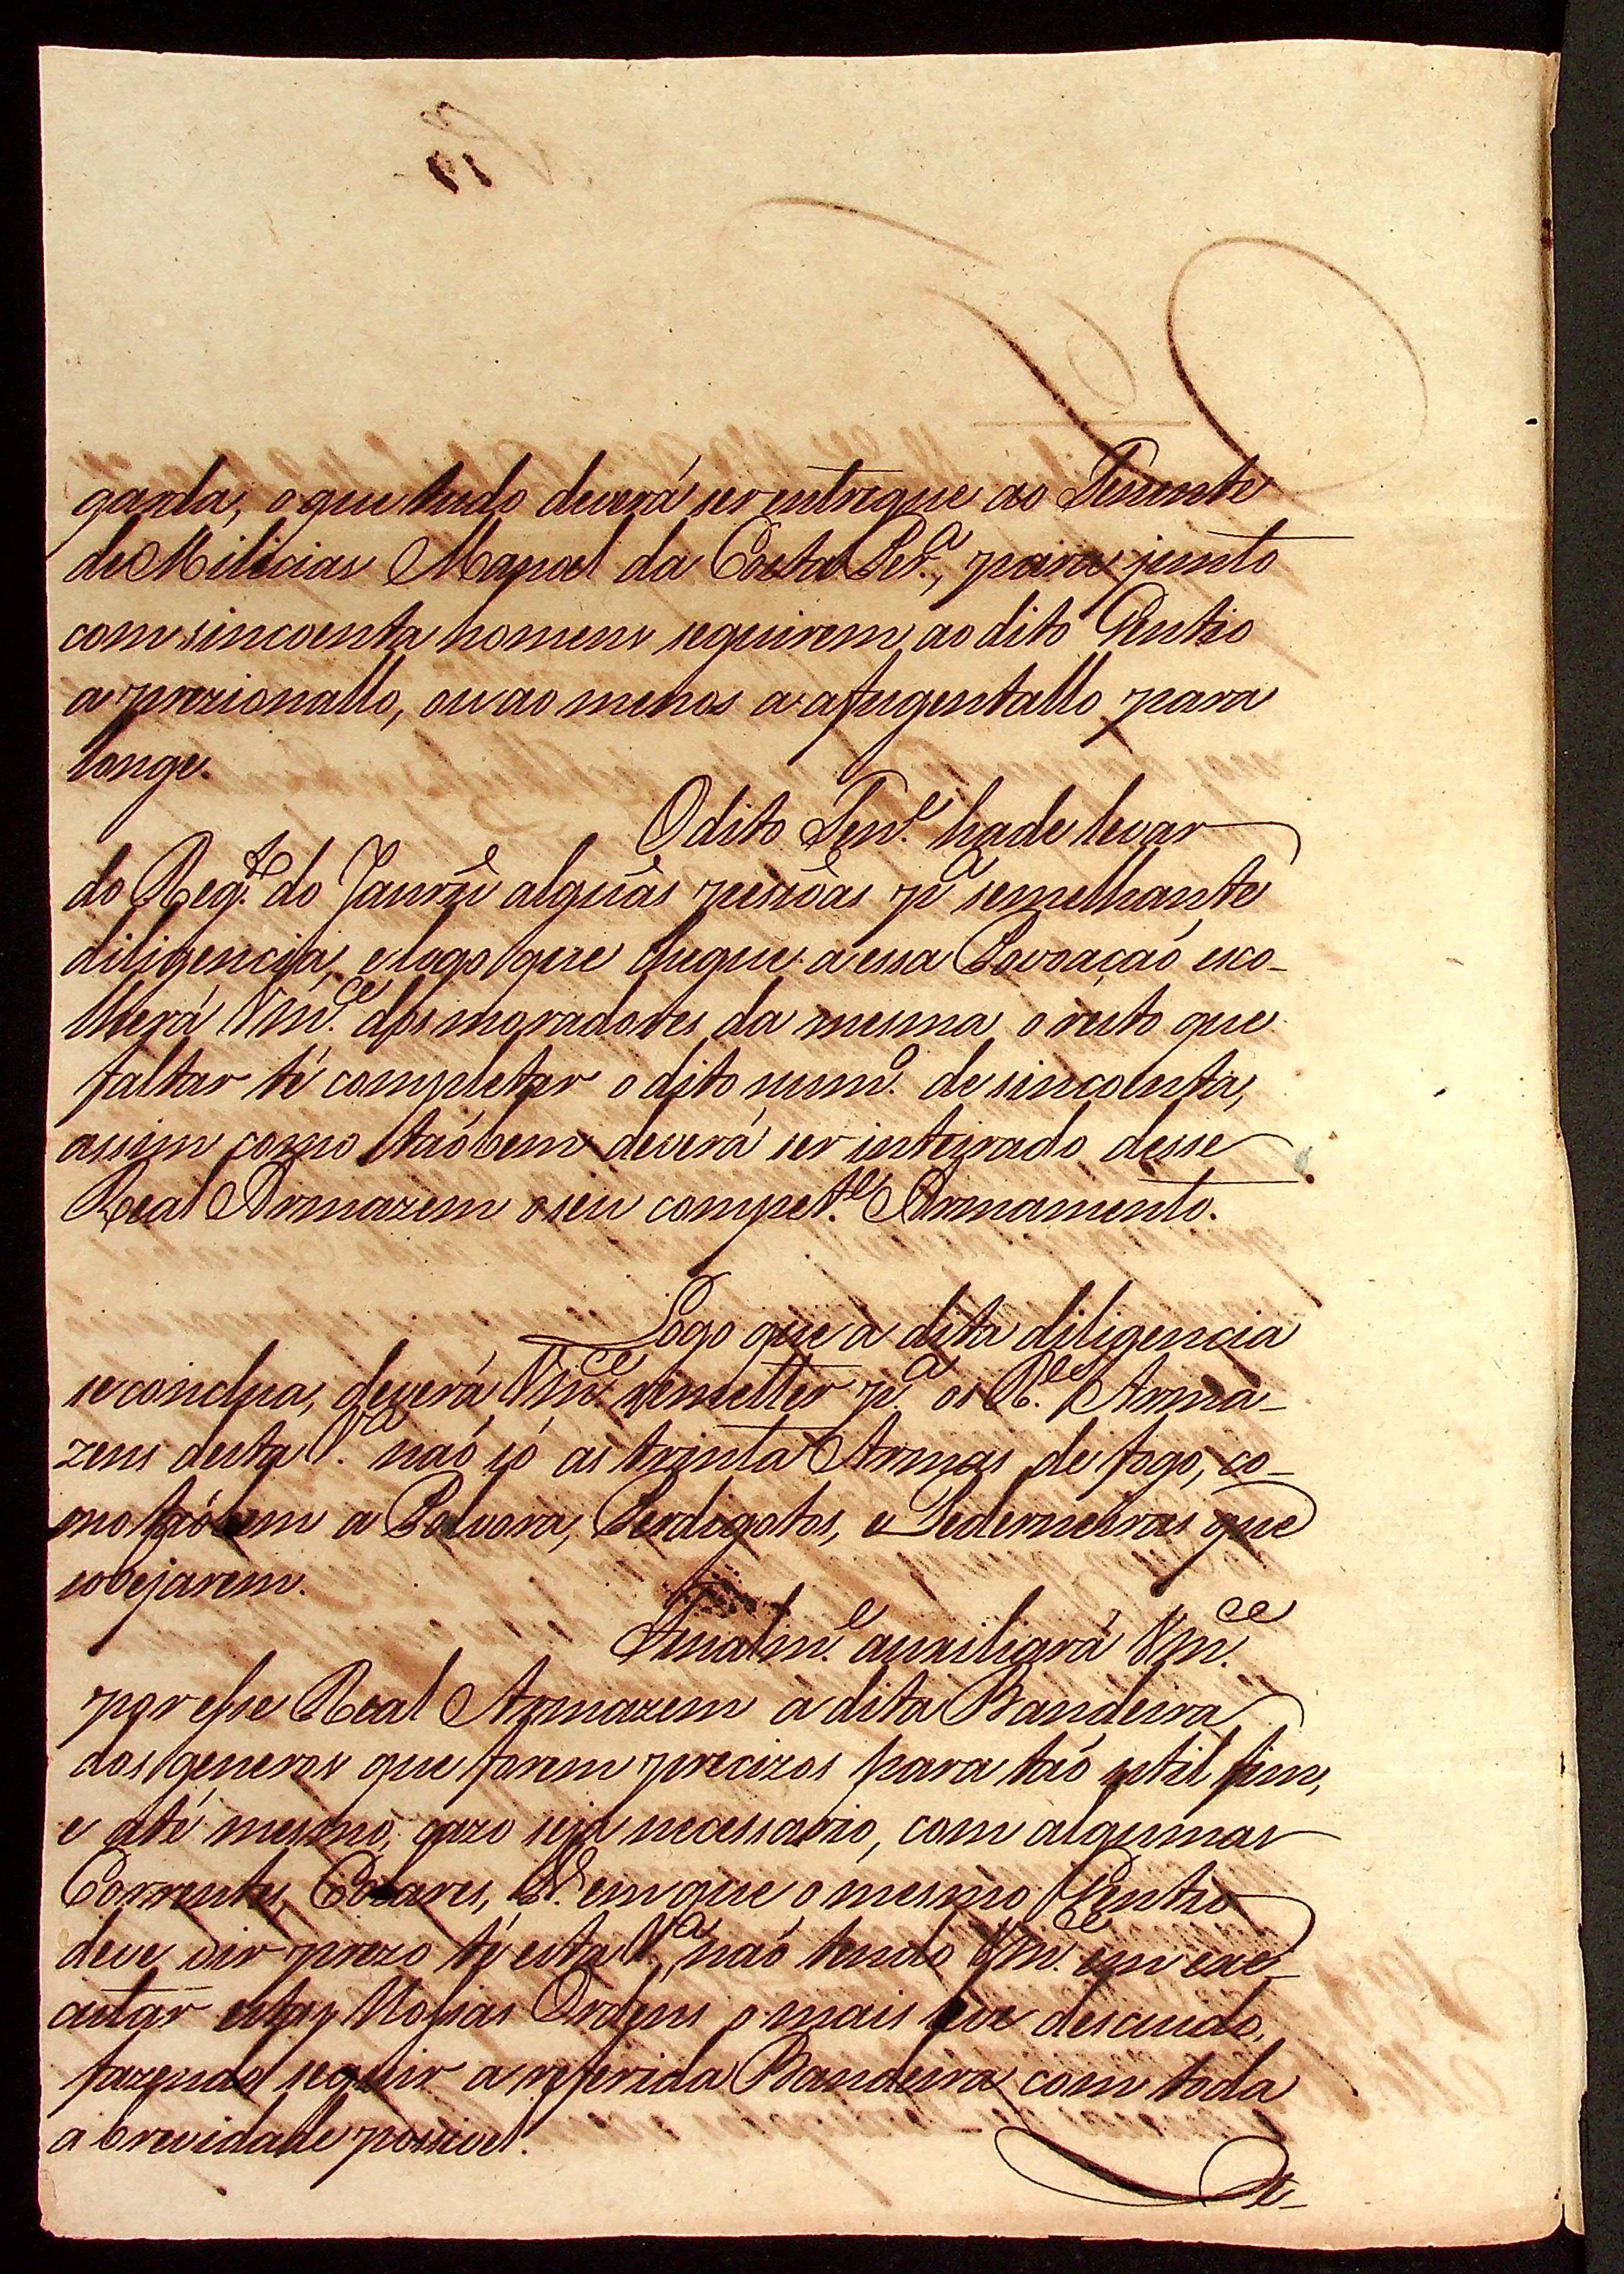 garda, o que tudo deverá ser entregue ao Tenente
de Milicias Manoel da Costa Per.ª, para junto
com sincoenta homens seguirem ao dito Gentio
a prezionallo, ou ao menos a afugentallo para
longe.
O dito Ten.e hade levar
do Reg.to do Jaurú alguãs pessôas p.ª semelhante
diligencia, e logo que chegue a essa Povoaçaó esco-
lherá Vm.ce dos moradores da mesma o resto que
faltar té completar o dito num.o de sincoenta,
assim como taóbem deverá ser inteirado desse
Real Armazem o seu compet.te Armamento.
Logo que a dita diligencia
se conclua, deverá Vm.ce remetter p.ª os R.es Arma-
zens desta V.ª naó só as trinta Armas de fogo, co-
mo taóbem a Polvora, Perdigotos, e Pederneiras que
sobejarem.
Finalm.e auxiliará Vm.ce
por esse Real Armazem a dita Bandeira
dos generos que forem precizos para taó util fim,
e até mesmo, cazo seja necessario, com algumas
Correntes, Colares, &.ª em que o mesmo Gentio
deve vir prezo té esta V.ª, naó tendo Vm.ce em exe-
cutar estas Nossas Ordens o mais leve descuido,
fazendo seguir a referida Bandeira com toda
a brevidade possivel.